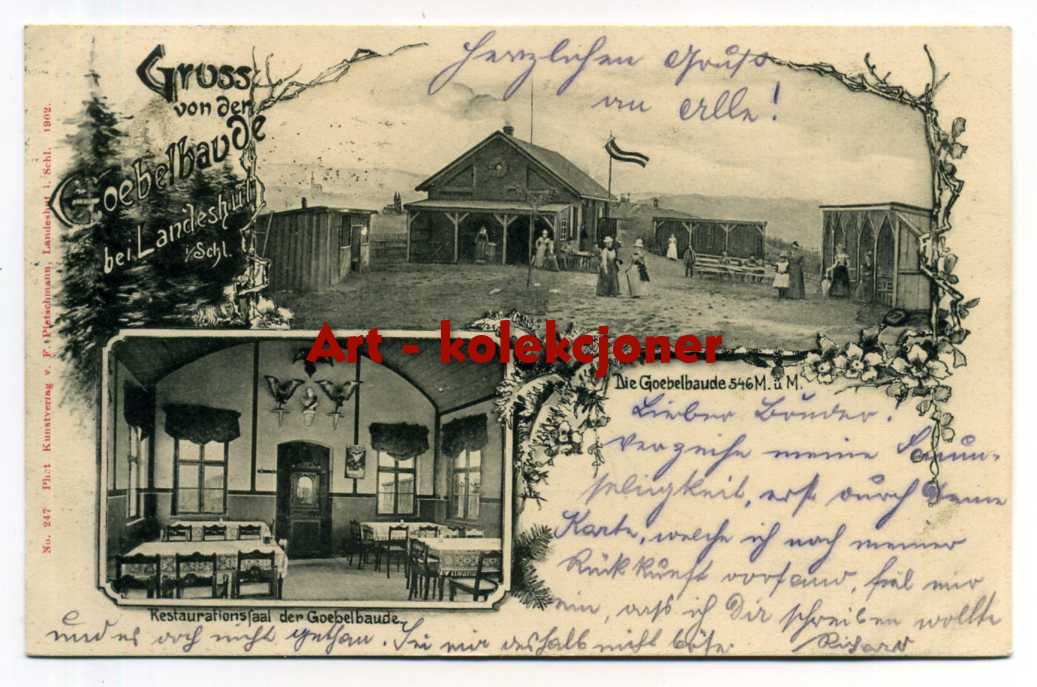 Gruss
von der
Goebelbaude
bei Landeshut
i/Schl.
Herzlichen Gruß
an Alle!
No. 247 Phot Kunstverlag v. F. Pietschmann, Landeshut i. Schl. 1902.
Art - kolekcjoner
Die Goebelbaude 546 M. ü M.
Restaurationssaal der Goebelbaude
Lieber Bruder!
Verzeihe meine Saum-
seligkeit, erst durch Deine
Karte, welche ich nach meiner
Rückkunft vorfand, fiel mir
ein, daß ich Dir schreiben wollte
und es doch nicht gethan. Sei mir deshalb nicht böse.
Richard